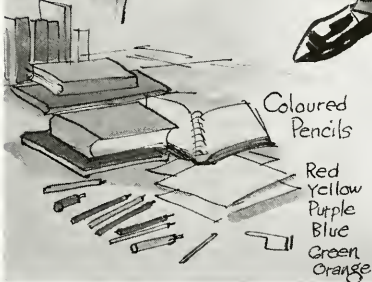 Coloured
Pencils
Red
Yellow
Purple
Blue
Green
Orange